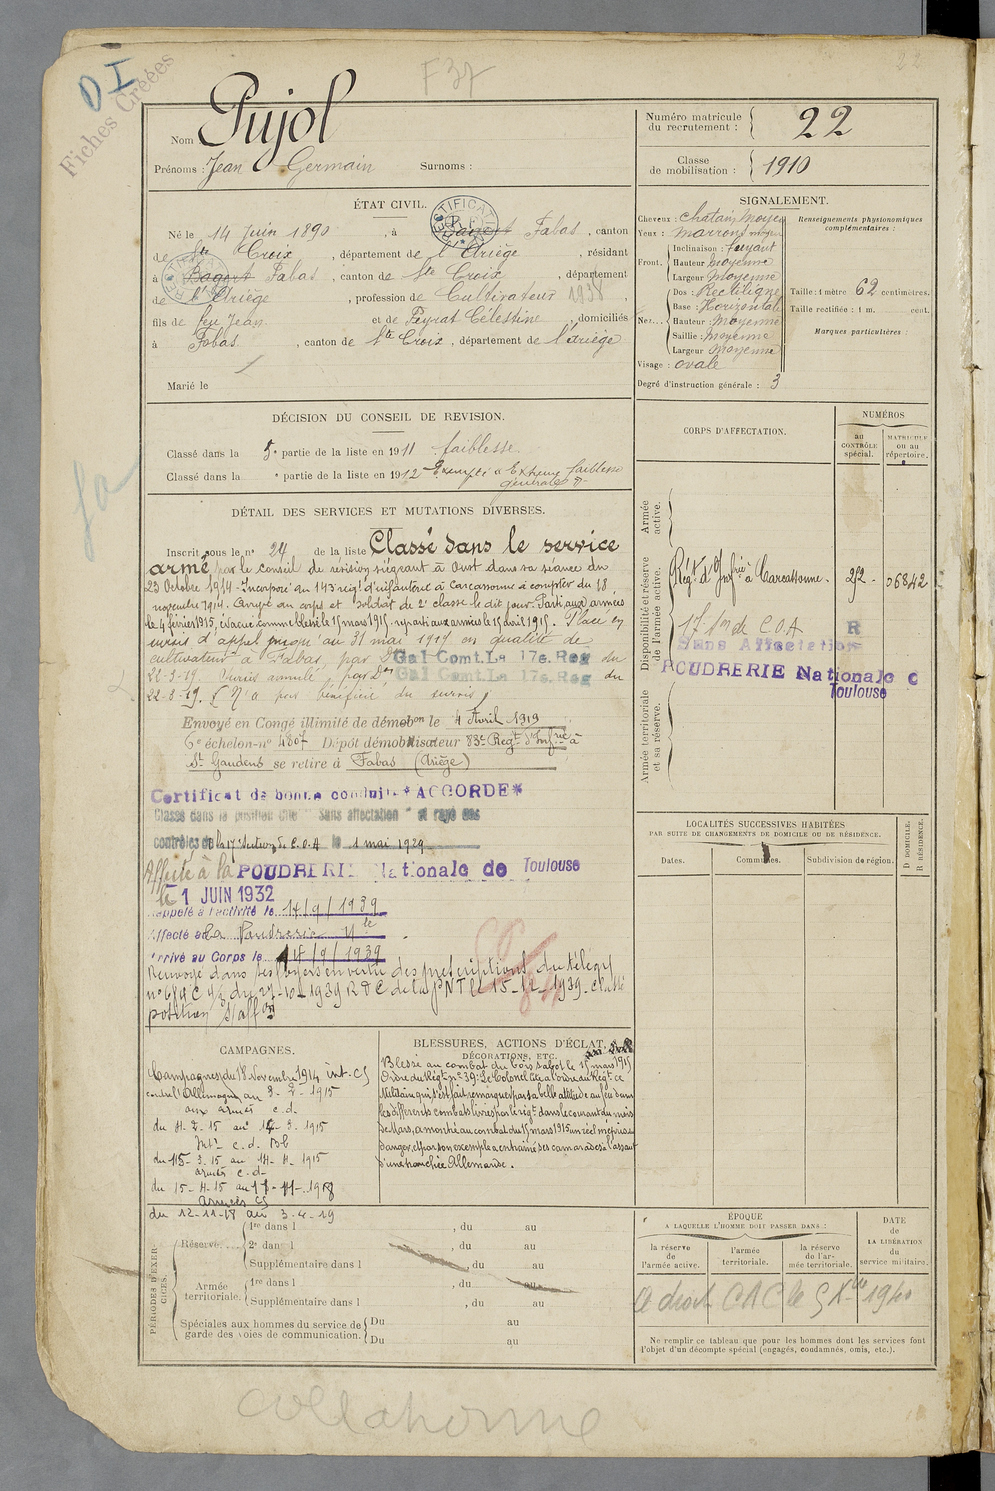 22
F37
OI
Fiches Créées
Nom Pujol
Prénoms : Jean Germain Surnoms :
Numéro matricule du recrutement : 22
Classe de mobilisation : 1910
ÉTAT CIVIL.
RECTIFICATION
Né le 14 Juin 1890, à Bagert Fabas, canton
de Ste Croix, département de l'Ariège, résidant
à Bagert Fabas, canton de Ste Croix, département
de l'Ariège, profession de Cultivateur 1938
fils de feu Jean et de Peyrat Célestine, domiciliés
à Fabas, canton de Ste Croix, département de l'Ariège
Marié le
SIGNALEMENT.
Cheveux : Chatain Moyen
Yeux : marrons moyen
Front. Inclinaison : fuyant
Hauteur moyenne
Largeur Moyenne
Nez... Dos : Rectiligne
Base : Horizontale
Hauteur : Moyenne
Saillie : Moyenne
Largeur Moyenne
Visage : ovale
Degré d'instruction générale : 3
Renseignements physionomiques complémentaires :
Taille : 1 mètre 62 centimètres.
Taille rectifiée : 1 m. cent.
Marques particulières :
DÉCISION DU CONSEIL DE REVISION.
Classé dans la 5e partie de la liste en 1911 faiblesse
Classé dans la e partie de la liste en 1912 Exempté Extreme faiblesse
générale
DÉTAIL DES SERVICES ET MUTATIONS DIVERSES.
Inscrit sous le no 24 de la liste Classé dans le service
armé par le conseil de révision siégeant à Oust dans sa séance du
23 Octobre 1914. Incorporé au 143e régt d'infanterie à Carcassonne à compter du 18
novembre 1914. Arrivé au corps et soldat de 2e classe le dit jour. Parti aux armées
le 4 février 1915, évacué comme blessé le 15 mars 1915, reparti aux armées le 15 avril 1915. Placé en
sursis d'appel jusqu'au 31 mai 1919 en qualité de
cultivateur à Fabas, par Don Gal Comt. La 17e. Reg du
22-2-19. Sursis annulé par Don Gal Comt. La 17e. Reg du
22-3-19. (N'a pas bénéficié du sursis)
Envoyé en Congé illimité de démobon le 4 Avril 1919
6e échelon - no 4807 Dépôt démobilisateur 83e Régt d'Infrie à
St Gaudens se retire à Fabas (Ariège)
Certificat de bonne conduite *ACCORDE*
Classé dans la position dite " Sans affectation " et rayé des
contrôles de la 17e Section de C.O.A le 1 mai 1929
Affecté à la POUDRERIE Nationale de Toulouse
le 1 JUIN 1932
Rappelé à l'activité le 14/9/1939
Affecté à la Poudrerie Nle
Arrivé au Corps le 14/9/1939
Renvoyé dans ses foyers en vertu des prescriptions du télég
position s/affon
CORPS D'AFFECTATION.
NUMÉROS
au CONTRÔLE spécial.
MATRICULE ou au répertoire.
Armée active.
Disponibilité et réserve de l'armée active.
Armée territoriale et sa réserve.
Régt d'Infrie à Carcassonne. 252 - 06842
17e Son de C.O.A R
Sans Affectation
POUDRERIE Nationale de
Toulouse
LOCALITÉS SUCCESSIVES HABITÉES
PAR SUITE DE CHANGEMENTS DE DOMICILE OU DE RÉSIDENCE.
Dates.
Communes.
Subdivision de région.
D DOMICILE, R RÉSIDENCE.
CAMPAGNES.
Campagnes du 18 Novembre 1914 int. CS
contre l'Allemagne au 3-2-1915
aux armées c.d.
du 4-2-15 au 14-3-1915
Intr c.d. Bl
du 15-3-15 au 14-4-1915
armées c.d.
du 15-4-15 au 11-11-1918
Armées CS
du 12-11-18 au 3-4-19
BLESSURES, ACTIONS D'ÉCLAT,
DÉCORATIONS, ETC.
Blessé au combat du bois Sabot le 15 mars 1915
Ordre du Régt no 39: Le Colonel cite à l'ordre du Régt ce
Militaire qui s'est fait remarquer par sa belle attitude au feu dans
les différents combats livrés par le régt dans le courant du mois
de Mars, a montré au combat du 15 mars 1915 un réel mépris du
danger et par son exemple a entraîné ses camarades à l'assaut
d'une tranchée Allemande.
PÉRIODES D'EXERCICES.
Réserve.... 1re dans l , du au
2e dans l , du au
Supplémentaire dans l , du au
Armée territoriale. 1re dans l , du au
Supplémentaire dans l , du au
Spéciales aux hommes du service de garde des voies de communication. Du au
Du au
ÉPOQUE
A LAQUELLE L'HOMME DOIT PASSER DANS :
la réserve de l'armée active.
l'armée territoriale.
la réserve de l'armée territoriale.
DATE de LA LIBÉRATION du service militaire.
a droit CAC le 1940
Ne remplir ce tableau que pour les hommes dont les services font
l'objet d'un décompte spécial (engagés, condamnés, omis, etc.).